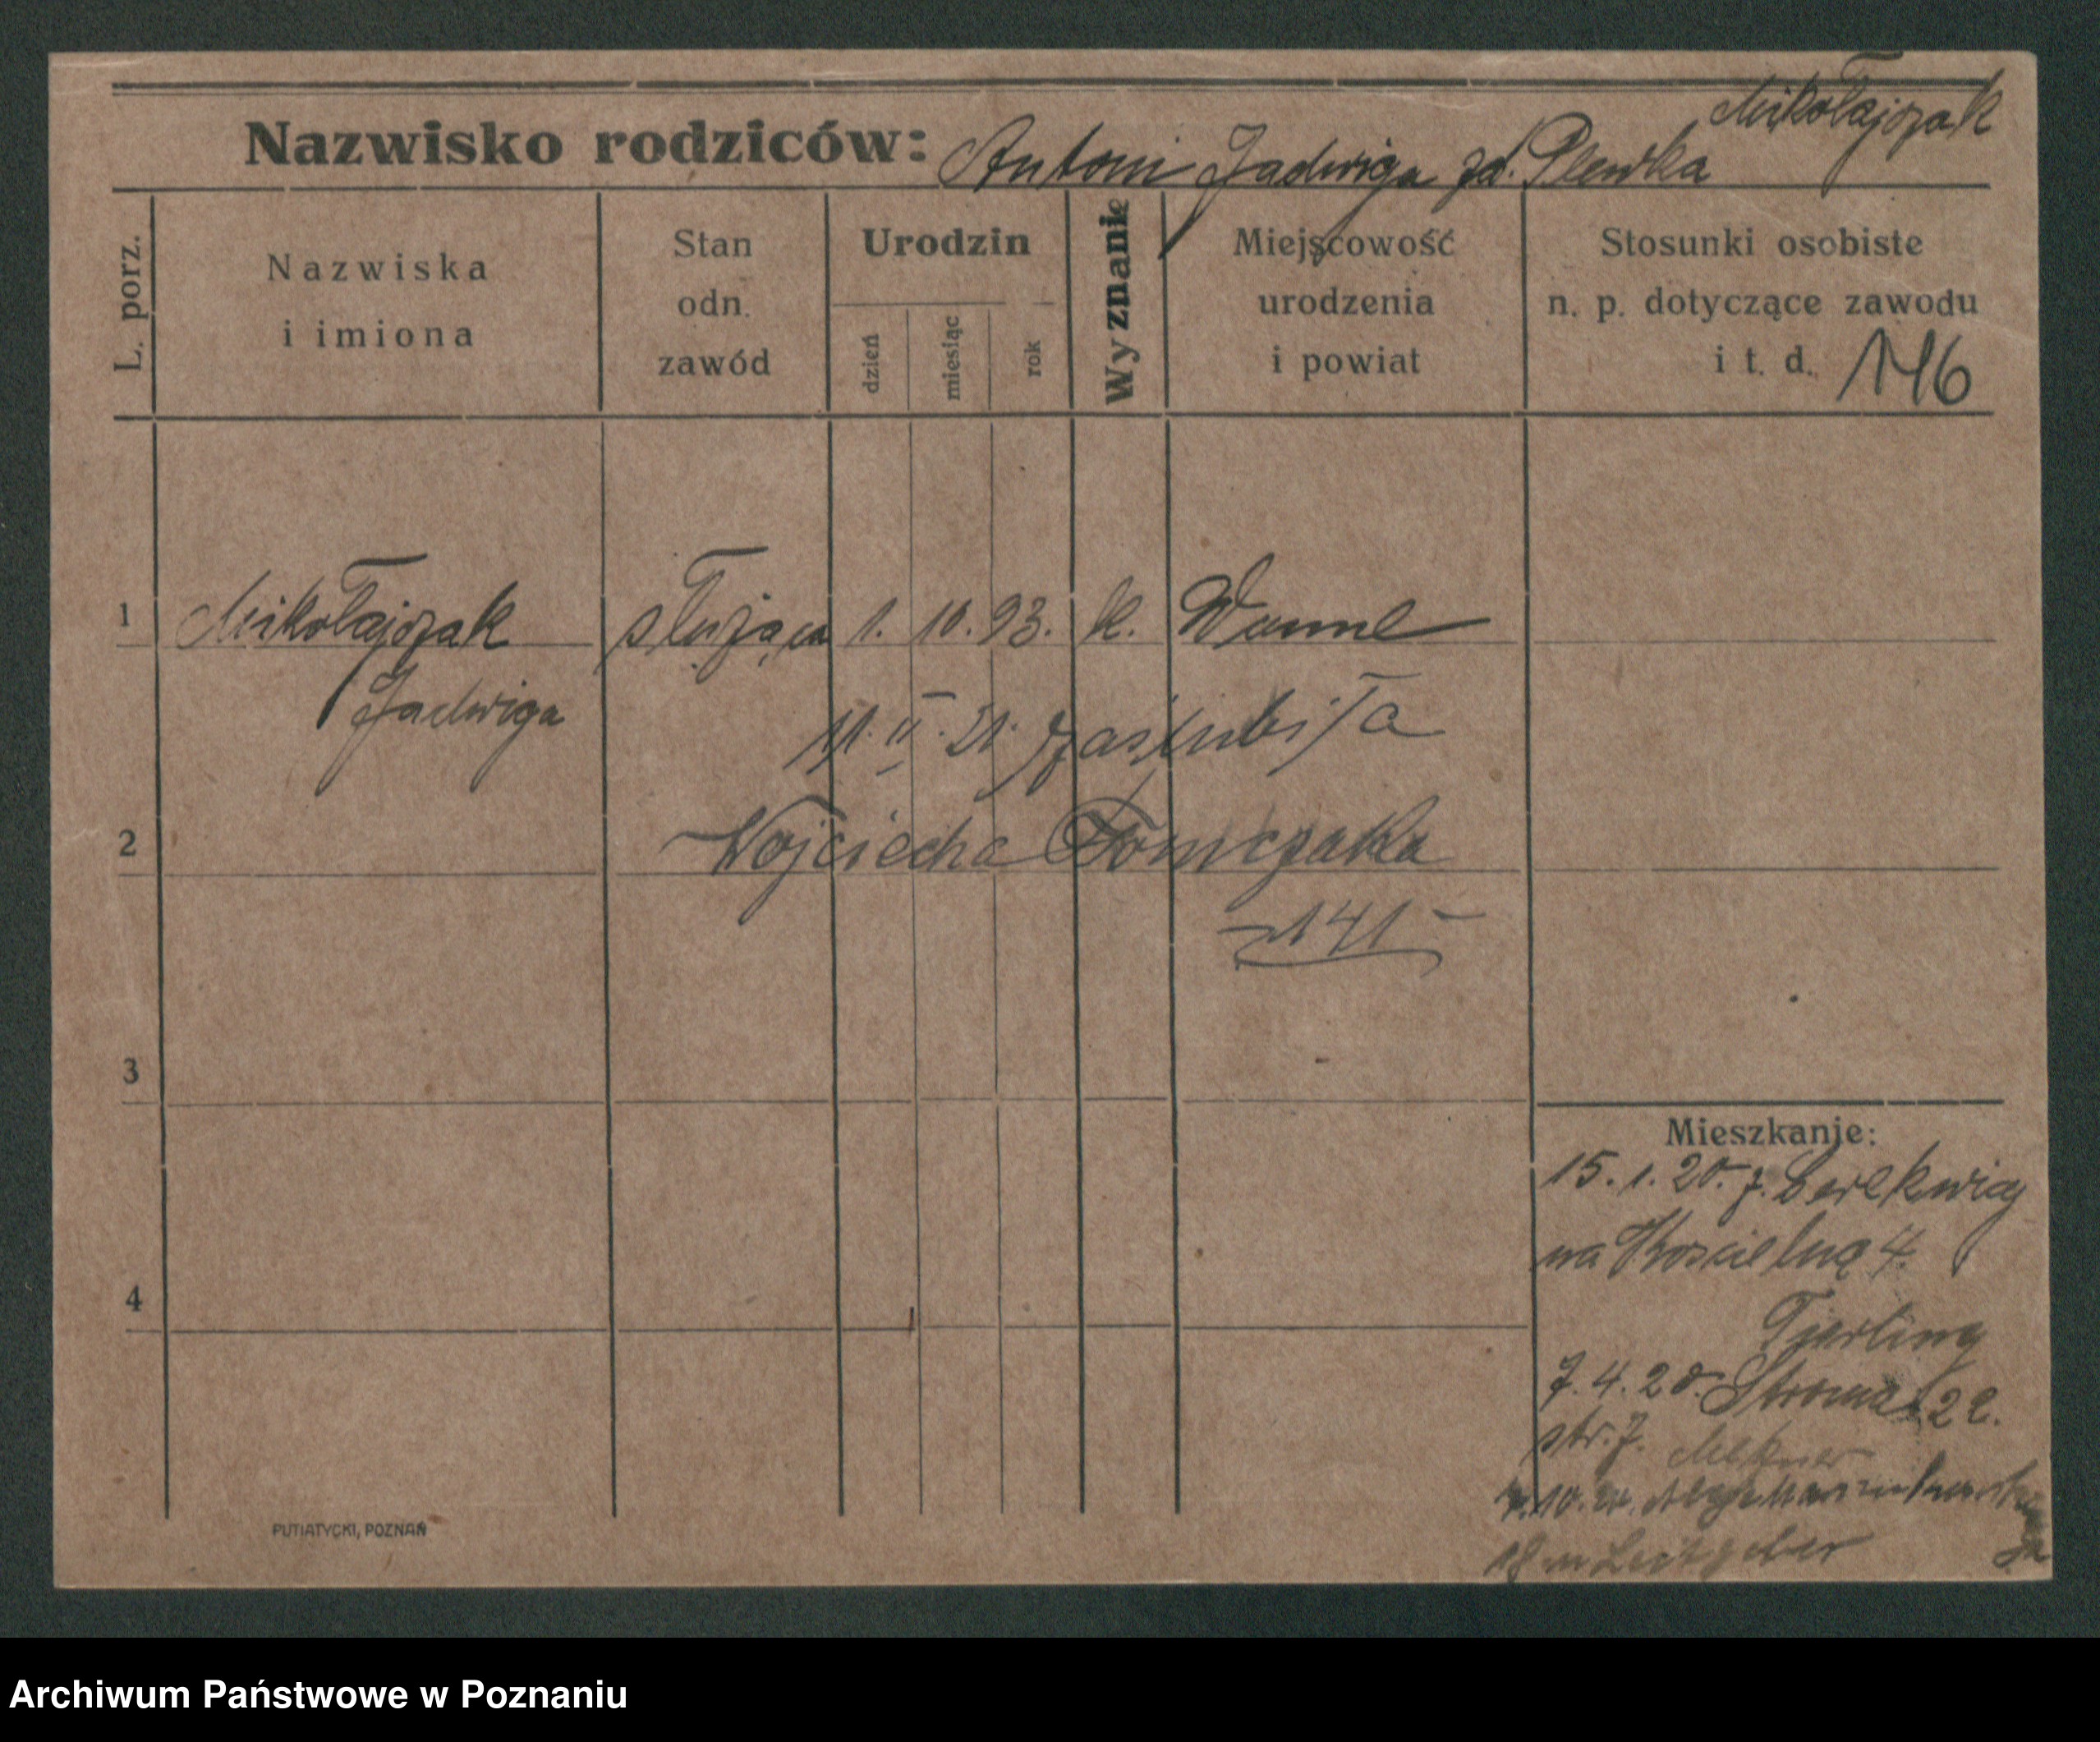 Mikołajczak
Nazwisko rodziców: Antoni Jadwiga zd. Plewka
L. porz.
Nazwiska
i imiona
Stan
odn.
zawód
Urodzin
dzień
miesiąc
rok
Wyznanie
Miejscowość
urodzenia
i powiat
Stosunki osobiste
n. p. dotyczące zawodu
i t. d.
146
1 Mikołajczak służąca 1. 10. 93. k. Wanne
Jadwiga
11. II. 21. zaślubiła
2 Wojciecha Tomczaka
141
3
Mieszkanie:
15. 1. 20. z
na Kościelną 4.
4
7. 4. 20. Stroma 22.
str. 7.
18 Leitgeber
PUTIATYCKI, POZNAŃ
Archiwum Państwowe w Poznaniu